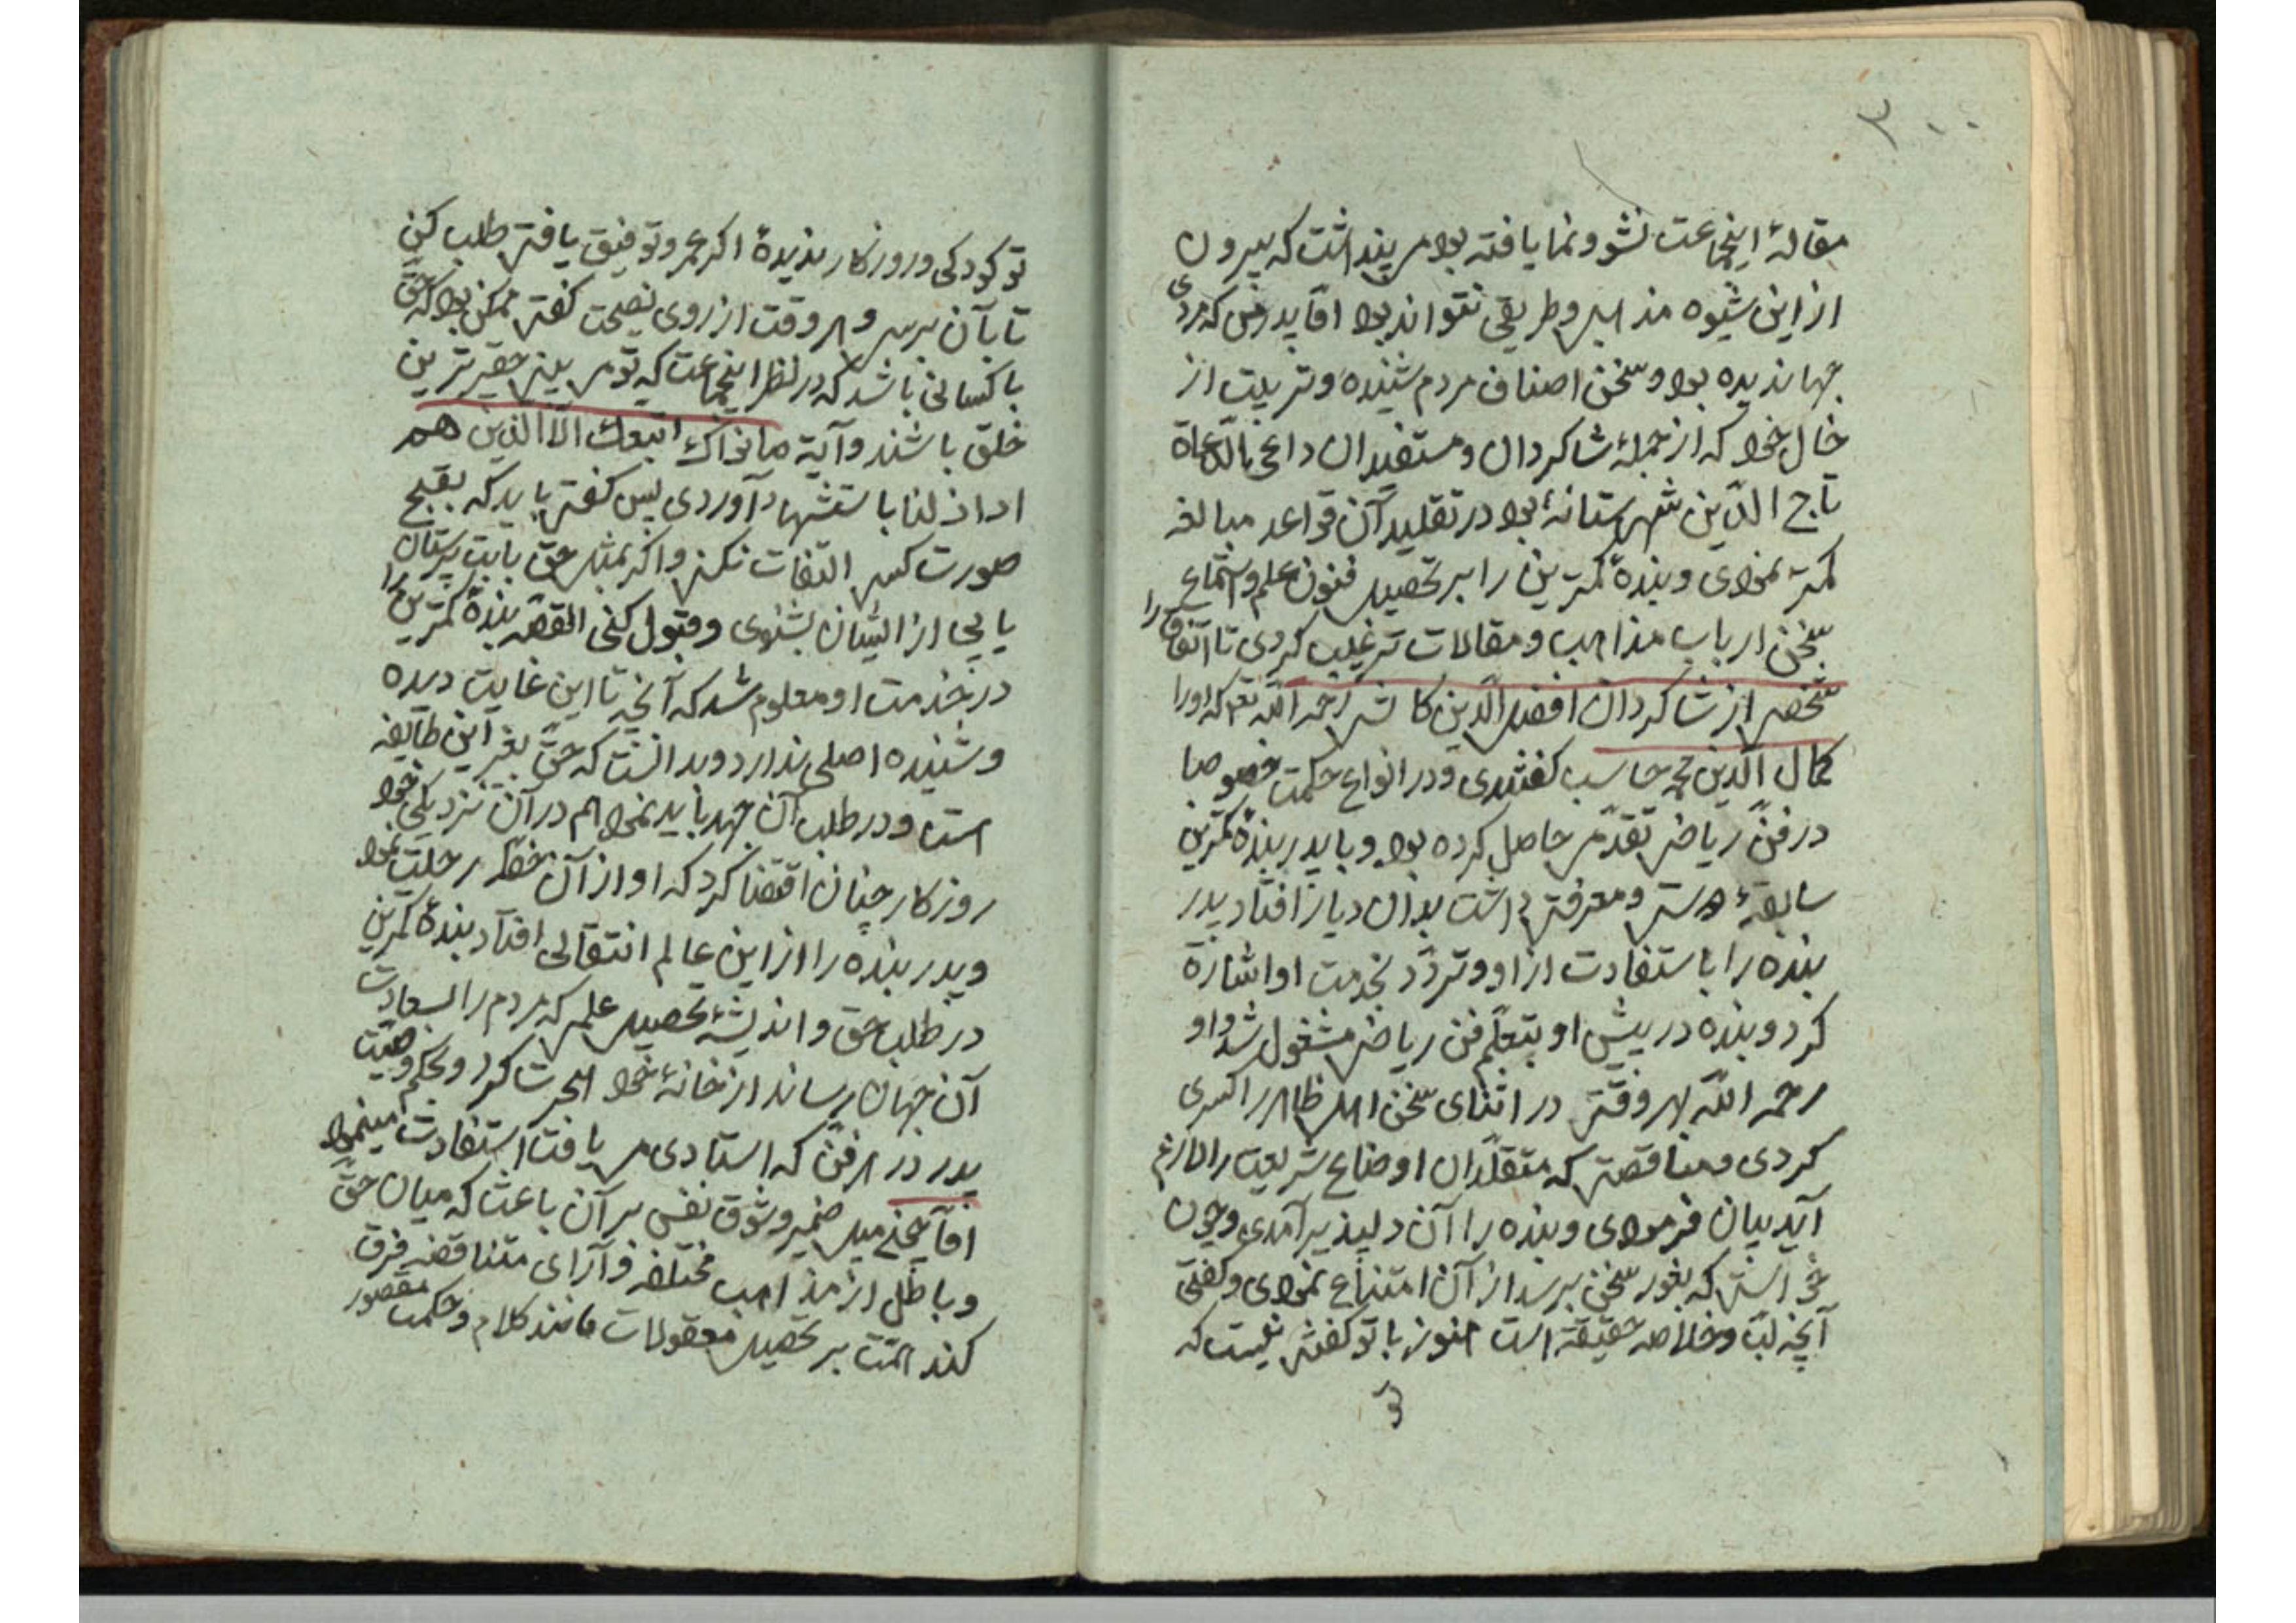 ۳۰۰
مقالهٔ اینجماعت نشو و نما یافته بود می‌پنداشت که بیرون
از این شیوه مذهبی و طریقی نتواند بود اما پدر من که مردی
جهاندیده بود و سخن اصناف مردم شنیده و تربیت از
خال خود که از جملهٔ شاکردان و مستفیدان داعی الدعاة
تاج الدین شهرستانهٔ بود در تقلید آن قواعد مبالغه
کمتر نمودی و بندهٔ کمترین را بر تحصیل فنون علم و استماع
سخن ارباب مذاهب و مقالات ترغیب کردی تا اتفاق را
شخصی از شاکردان افضل الدین کاشی رحمه الله تعم که او را
کمال الدین محمد حاسب کفتندی و در انواع حکمت خصوصا
در فن ریاضی تقدمی حاصل کرده بود و با پدر بندهٔ کمترین
سابقهٔ دوستی و معرفتی داشت بدان دیار افتاد پدر
بنده را باستفادت از او و تردد بخدمت او اشارة
کرد و بنده در پیش او بتعلم فن ریاضی مشغول شد و او
رحمه الله بهر وقتی در اثنای سخن اهل ظاهر را کسری
کردی و مناقضتی که متقلدان اوضاع شریعت را لازم
آید بیان فرمودی و بنده را آن دلپذیر آمدی و چون
خواستی که بغور سخن برسد از آن امتناع نمودی و کفتی
آنچه لب و خلاصه حقیقة است هنوز با تو کفتنی نیست که
تو
تو کودکی و روزکار ندیدهٔ اکر عمر و توفیق یافتی طلب کنی
تا بآن برسی و هر وقت از روی نصیحت کفتی ممکن بود که حق
با کسانی باشد که در نظر اینجماعت که تو می‌بینی حقیرترین
خلق باشند و آیة ما نراك اتبعك الا الذین هم
اراذلنا باستشهاد آوردی پس کفتی باید که بقبح
صورت کسی التفات نکنی و اکر بمثل حق با بت پرستان
یابی از ایشان بشنوی و قبول کنی القصه بندهٔ کمترین را
در خدمت او معلوم شد که آنچه تا این غایت دیده
و شنیده اصلی ندارد و بدانست که حق بغیر این طایفه
است و در طلب آن جهد باید نمود هم در آن نزدیکی خود
روزکار چنان اقتضا کرد که او از آن خطه رحلت نمود
و پدر بنده را از این عالم انتقالی افتاد بندهٔ کمترین
در طلب حق و اندیشهٔ تحصیل علمی که مردم را بسعادت
آن جهان رساند از خانهٔ خود هجرت کرد و بحکم وصیت
پدر در هر فن که استادی می‌یافت استفادت مینمود
اما چون میل ضمیر و شوق نفس بر آن باعث که میان حق
و باطل از مذاهب مختلفه و آرای متناقضه فرق
کند همت بر تحصیل معقولات مانند کلام و حکمت مقصور